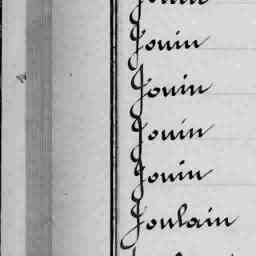 Jouin
Jouin
Jouin
Jouin
Jouin
Joulain